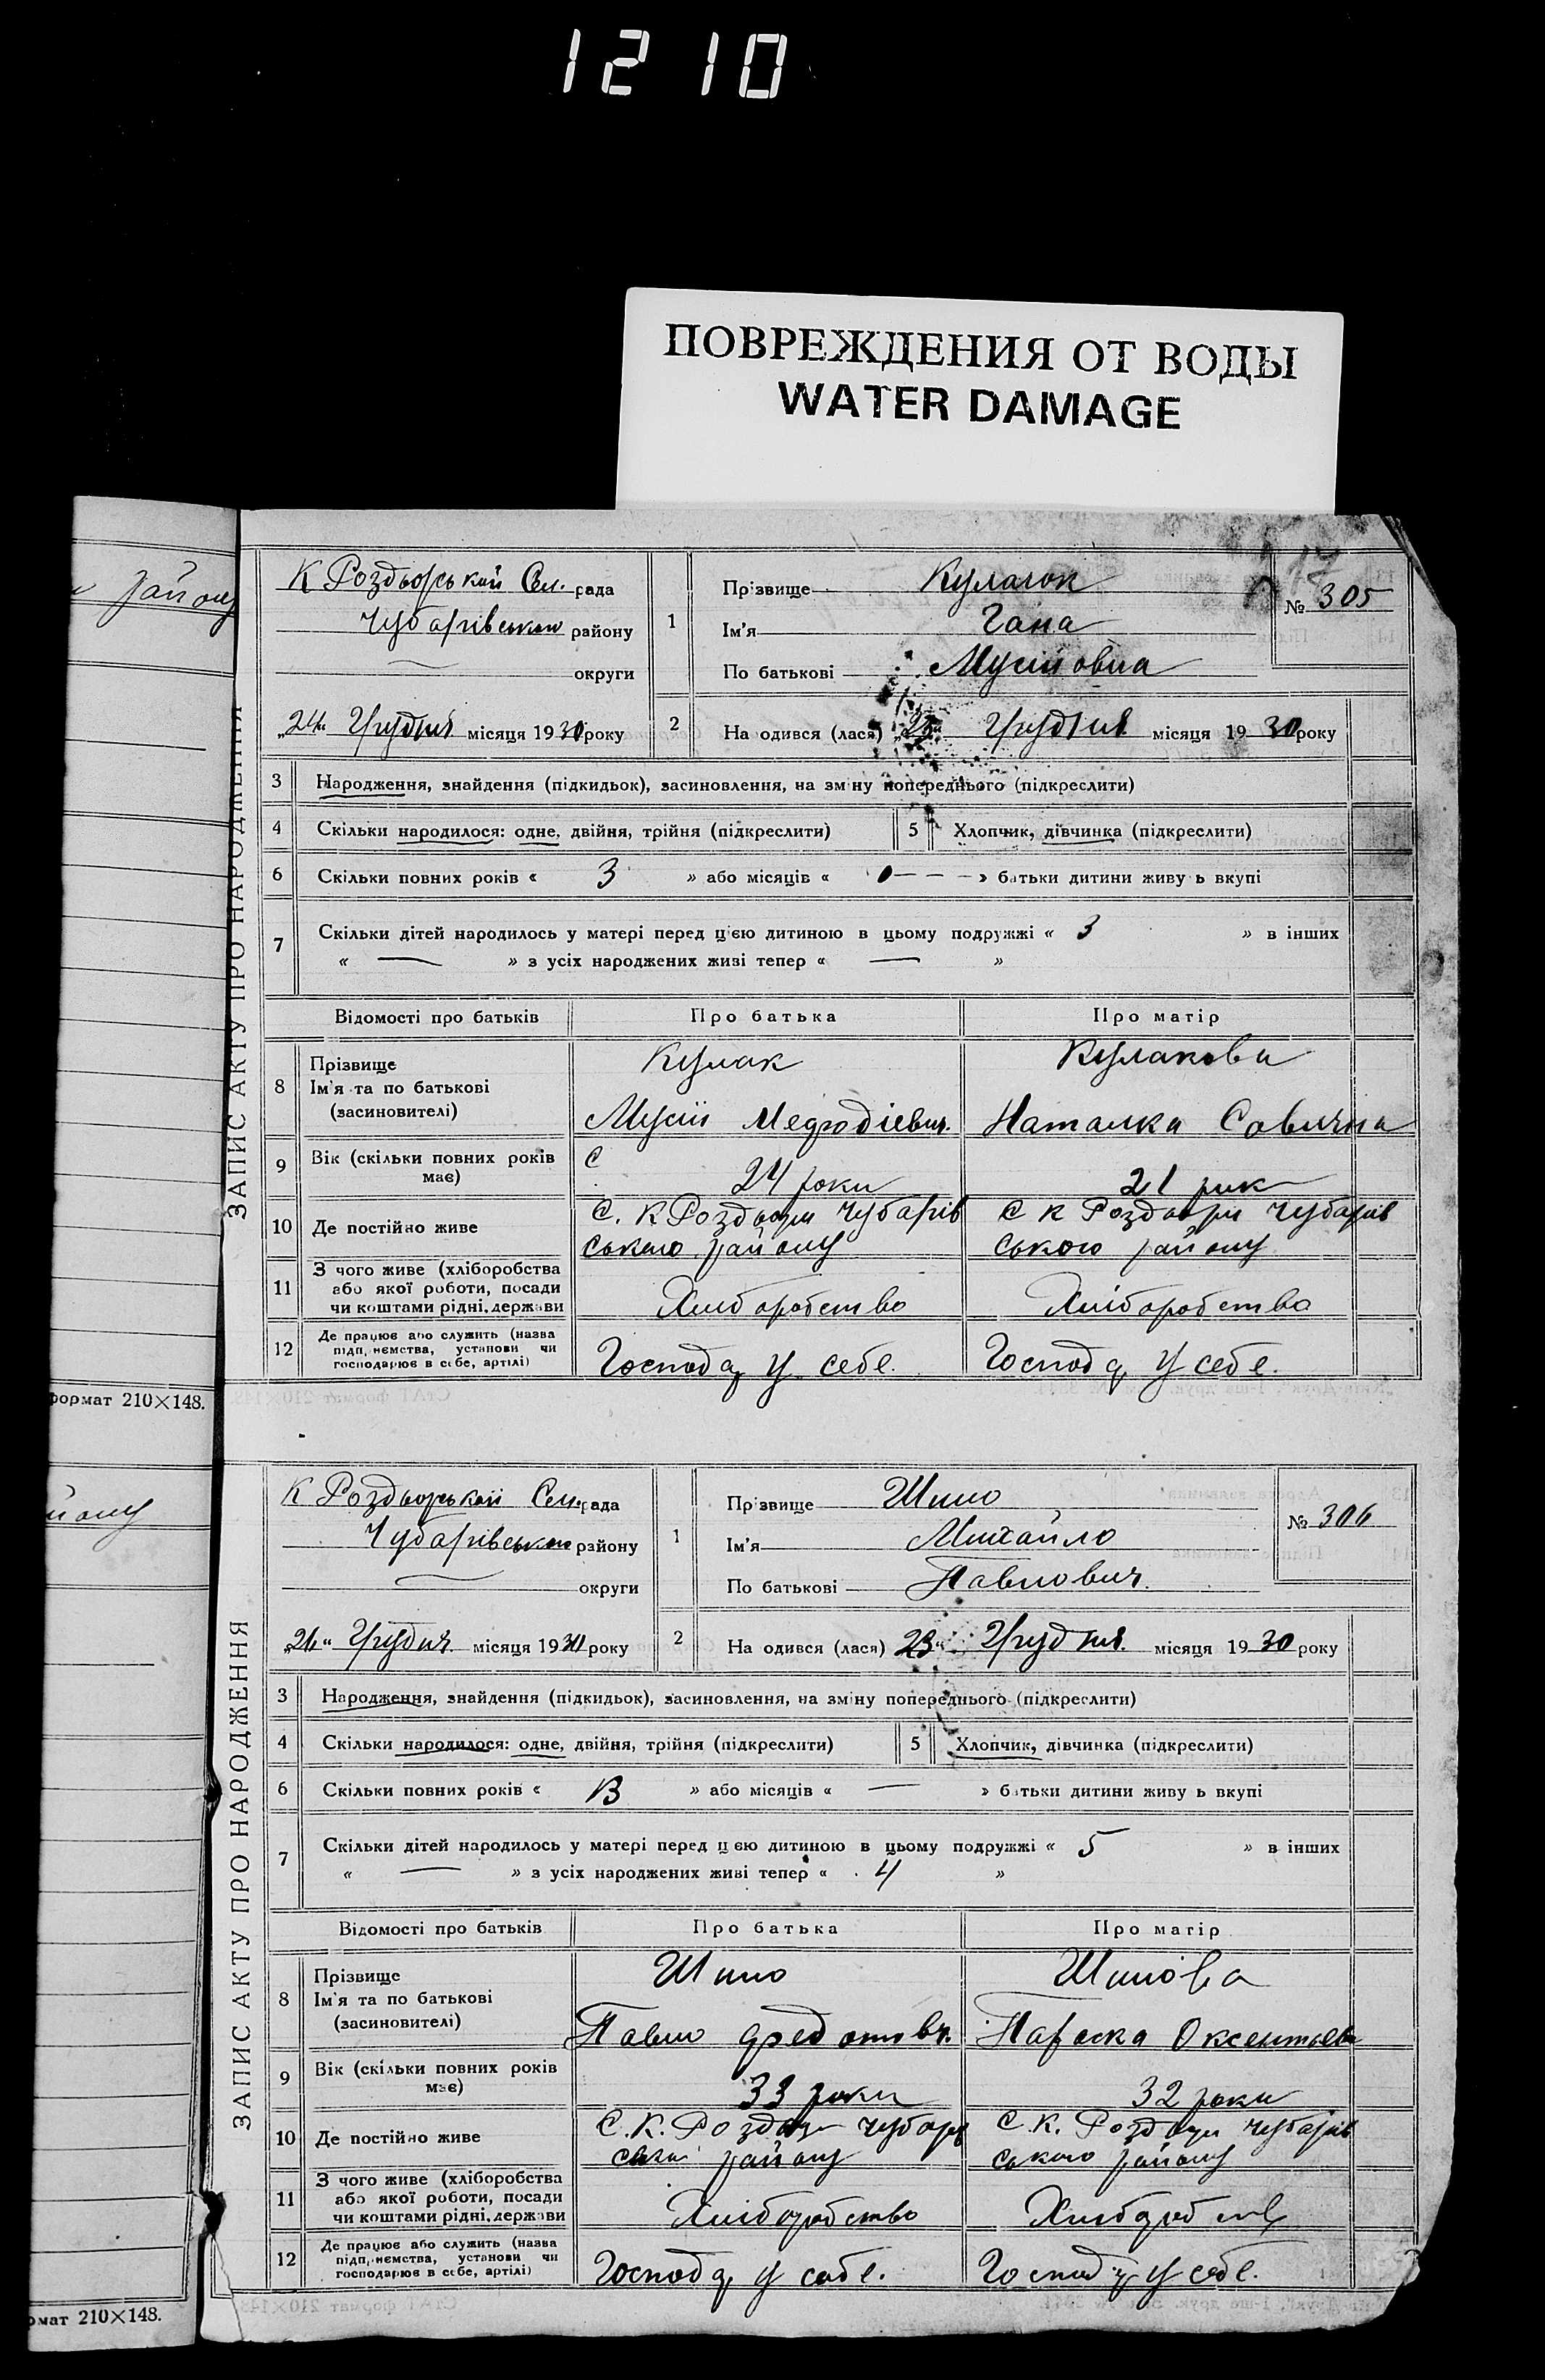 1210
ПОВРЕЖДЕНИЯ ОТ ВОДЫ
WATER DAMAGE
району
формат 210×148.
ЗАПИС АКТУ ПРО НАРОДЖЕННЯ
К Роздорської Сел. рада
Чубарівського району
округи
„24“ Грудня місяця 1930 року
1
Прізвище Кулагок
Ім'я Гана
По батькові Мусіївна
№ 305
2 На одився (лася) Грудня місяця 19 30 року
3 Народження, знайдення (підкидьок), засиновлення, на зміну попереднього (підкреслити)
4 Скільки народилося: одне, двійня, трійня (підкреслити) 5 Хлопчик, дівчинка (підкреслити)
6 Скільки повних років « 3 » або місяців « — » батьки дитини живу ь вкупі
7 Скільки дітей народилось у матері перед цією дитиною в цьому подружжі « 3 » в інших
« — » з усіх народжених живі тепер « — »
Відомості про батьків Про батька Про матір
8 Прізвище
Ім'я та по батькові
(засиновителі)
Кулак
Мусій Медфодіевич.
Кулакова
Наталка Савична
9 Вік (скільки повних років має) 24 роки 21 рік
10 Де постійно живе
С. К Роздори Чубарів
ського району
С К Роздори Чубарів
ського району
11 З чого живе (хліборобства
або якої роботи, посади
чи коштами рідні, держави
Хліборобство Хліборобство
12 Де працює або служить (назва
підп,иємства, установи чи
господарює в себе, артілі)
Господар у себе. Господар у себе.
СтАТ формат 210×148.
йону
рмат 210×148.
ЗАПИС АКТУ ПРО НАРОДЖЕННЯ
К Роздорської Сел. рада
Чубарівського району
округи
„24“ Грудня місяця 1930 року
1
Прізвище Шило
Ім'я Михайло
По батькові Павлович.
№ 306
2 На одився (лася) 23“ Грудня місяця 19 30 року
3 Народження, знайдення (підкидьок), засиновлення, на зміну попереднього (підкреслити)
4 Скільки народилося: одне, двійня, трійня (підкреслити) 5 Хлопчик, дівчинка (підкреслити)
6 Скільки повних років « 13 » або місяців « — » батьки дитини живу ь вкупі
7 Скільки дітей народилось у матері перед цією дитиною в цьому подружжі « 5 » в інших
« — » з усіх народжених живі тепер « 4 »
Відомості про батьків Про батька Про матір
8 Прізвище
Ім'я та по батькові
(засиновителі)
Шило
Павло Федотовч.
Шилова
Параска Оксентьевн
9 Вік (скільки повних років має) 33 роки 32 роки
10 Де постійно живе
С. К. Роздори Чубарів
ськ району
С. К. Роздори Чубарів
ського району
11 З чого живе (хліборобства
або якої роботи, посади
чи коштами рідні, держави
Хліборобство Хліборобство
12 Де працює або служить (назва
підп,иємства, установи чи
господарює в себе, артілі)
Господар у себе. Господар у себе.